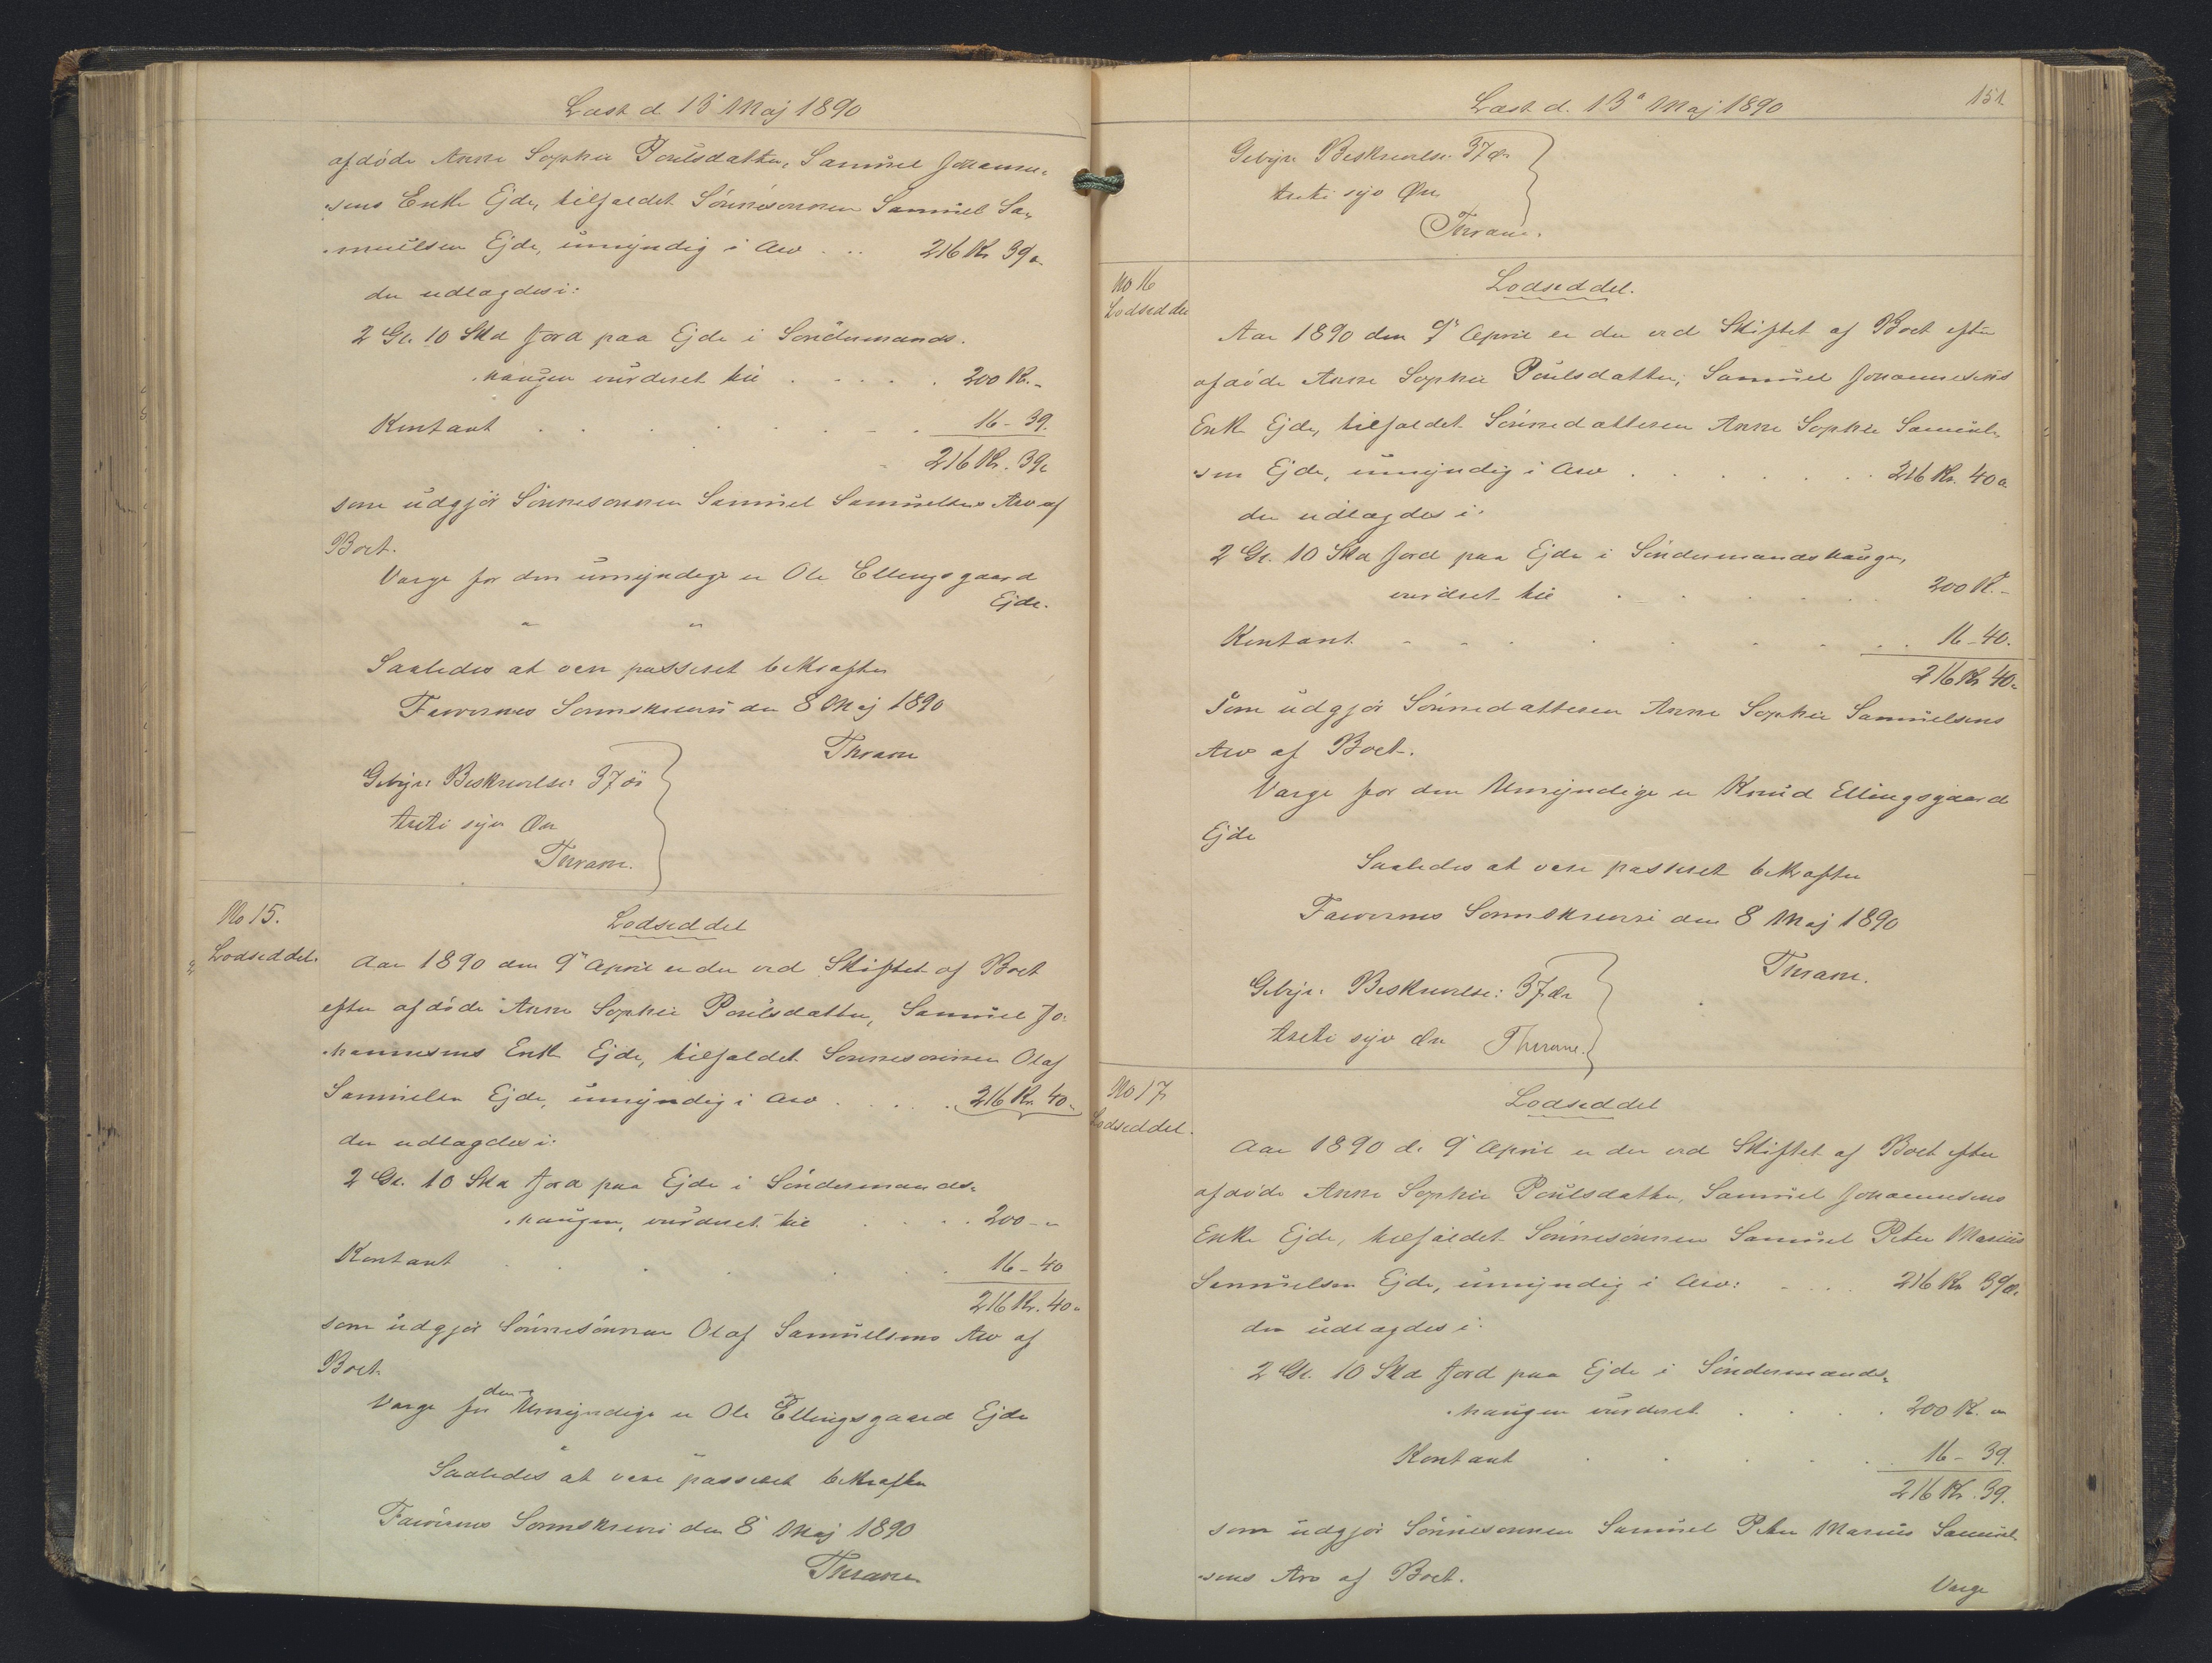 Læst d. 13' Maj 1890
afdöde Anne Sophie Poulsdatter, Samuel Johanne-
-sens Enke Ejde, tilfaldet Sönnesönnen Samuel Sa-
-muelsen Ejde, umyndig i Arv . . . 216 Kr 39 ø
der udlagdes i:
2 Gl. 10 Skd Jord paa Ejde i Söndermands-
-haugen vurderet til . . . . . 200 Kr. -
Kontant . . . . . . . 16 - 39.
216 Kr. 39 ø
som udgjör Sönnesönnen Samuel Samuelsens Arv af
Boet.
Værge for den umyndige er Ole Ellingsgaard
Ejde.
Saaledes at være passeret bekræfter
Færöernes Sorenskriveri den 8 Maj 1890
Thrane
Gebyr: Beskrivelse: 37 ør
treti syv Øre
Thrane.
No 15.
Lodseddel.
Lodseddel
Aar 1890 den 9' April er der ved Skiftet af Boet
efter afdöde Anne Sophie Poulsdatter, Samuel Jo-
-hannesens Enke Ejde, tilfaldet Sönnesönnen Olaf
Samuelsen Ejde, umyndig i Arv . . . . . 216 Kr. 40 -
der udlagdes i:
2 Gl. 10 Skd Jord paa Ejde i Söndermands-
-haugen, vurderet til . . . . 200 - -
Kontant . . . . . . 16 - 40
216 Kr. 40 -
som udgjör Sönnesönnen Olaf Samuelsens Arv af
Boet.
Værge for den Umyndige er Ole Ellingsgaard Ejde
Saaledes at være passeret bekræfter
Færöernes Sorenskriveri den 8' Maj 1890
Thrane
Læst d. 13' Maj 1890
151.
Gebyr: Beskrivelse: 37 ør
treti syv Øre
Thrane.
No 16
Lodseddel
Lodseddel.
Aar 1890 den 9' April er der ved Skiftet af Boet efter
afdöde Anne Sophie Poulsdatter, Samuel Johannesens
Enke Ejde, tilfaldet Sönnedatteren Anne Sophie Samuel-
-sen Ejde, umyndig i Arv . . . . . . . 216 Kr. 40 ø
der udlagdes i:
2 Gl. 10 Skd Jord paa Ejde i Söndermandshaugen,
vurderet til . . . . . 200 Kr. -
Kontant . . . . . . . . 16 - 40.
216 Kr 40 -
som udgjör Sönnedatteren Anne Sophie Samuelsens
Arv af Boet.
Værge for den Umyndige er Knud Ellingsgaard
Ejde
Saaledes at være passeret bekræfter
Færöernes Sorenskriveri den 8 Maj 1890
Thrane.
Gebyr: Beskrivelse: 37 ør
treti syv Øre Thrane.
No 17.
Lodseddel.
Lodseddel
Aar 1890 d. 9' April er der ved Skiftet af Boet efter
afdöde Anne Sophie Poulsdatter, Samuel Johannesens
Enke Ejde, tilfaldet Sönnesönnen Samuel Peter Marius
Samuelsen Ejde, umyndig i Arv: . . . . 216 Kr 39 ø.
der udlagdes i:
2 Gl. 10 Skd Jord paa Ejde i Söndermands-
-haugen vurderet . . . . 200 Kr. -
Kontant . . . . . 16 - 39.
216 Kr. 39.
som udgjör Sönnesönnen Samuel Peter Marius Samuel-
-sens Arv af Boet.
Værge